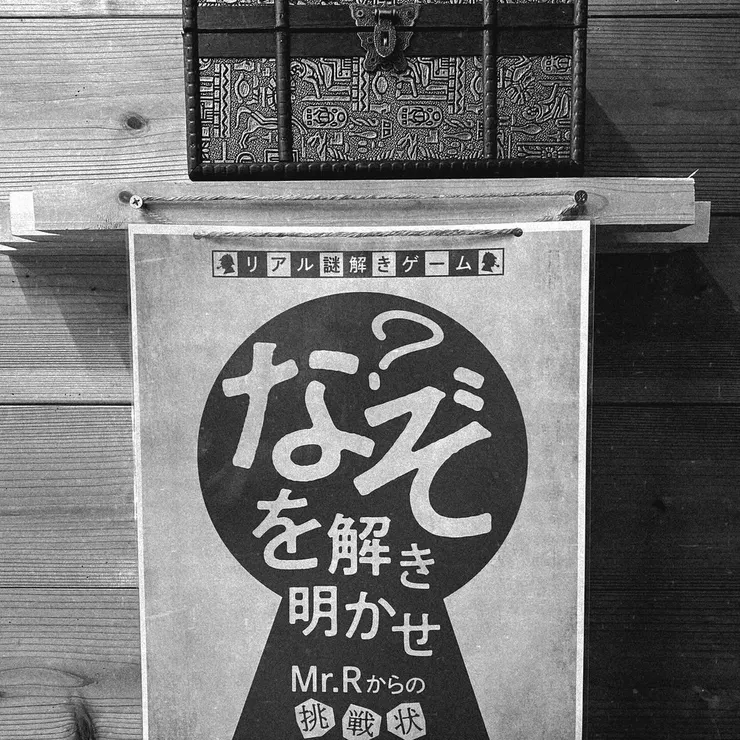 リアル謎解きゲーム
なぞ?
を解き
明かせ
Mr.Rからの
挑戦状